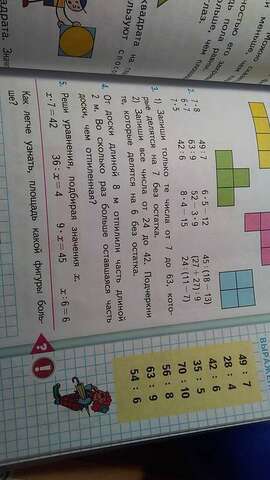 7 · 8
6 · 7
7 · 5
49 : 7
63 : 9
42 : 6
6 · 5 − 12
52 − 3 · 9
6 · 4 − 15
45 : (18 − 13)
(27 + 27) : 9
24 : (11 − 7)
3. 1) Запиши только те числа от 7 до 63, кото-
рые делятся на 7 без остатка.
2) Запиши все числа от 24 до 42. Подчеркни
те, которые делятся на 6 без остатка.
4. От доски длиной 8 м отпилили часть длиной
2 м. Во сколько раз больше оставшаяся часть
доски, чем отпиленная?
5. Реши уравнения, подбирая значения x.
x · 7 = 42
36 : x = 4
9 · x = 45
x : 6 = 6
Как легче узнать, площадь какой фигуры боль-
ше?
?
!
49 : 7
28 : 4
42 : 6
35 : 5
70 : 10
56 : 8
63 : 9
54 : 6